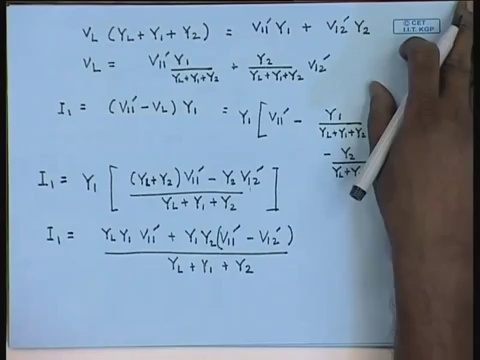 V_L (Y_L + Y_1 + Y_2) = V_11' Y_1 + V_12' Y_2
© CET
I.I.T. KGP
V_L = V_11' Y_1 / (Y_L+Y_1+Y_2) + Y_2 / (Y_L+Y_1+Y_2) V_12'
I_1 = (V_11' - V_L) Y_1 = Y_1 [ V_11' - Y_1 / (Y_L+Y_1+Y_2)
- Y_2 / (Y_L+Y
I_1 = Y_1 [ ((Y_L+Y_2) V_11' - Y_2 V_12') / (Y_L + Y_1 + Y_2) ]
I_1 = (Y_L Y_1 V_11' + Y_1 Y_2 (V_11' - V_12')) / (Y_L + Y_1 + Y_2)